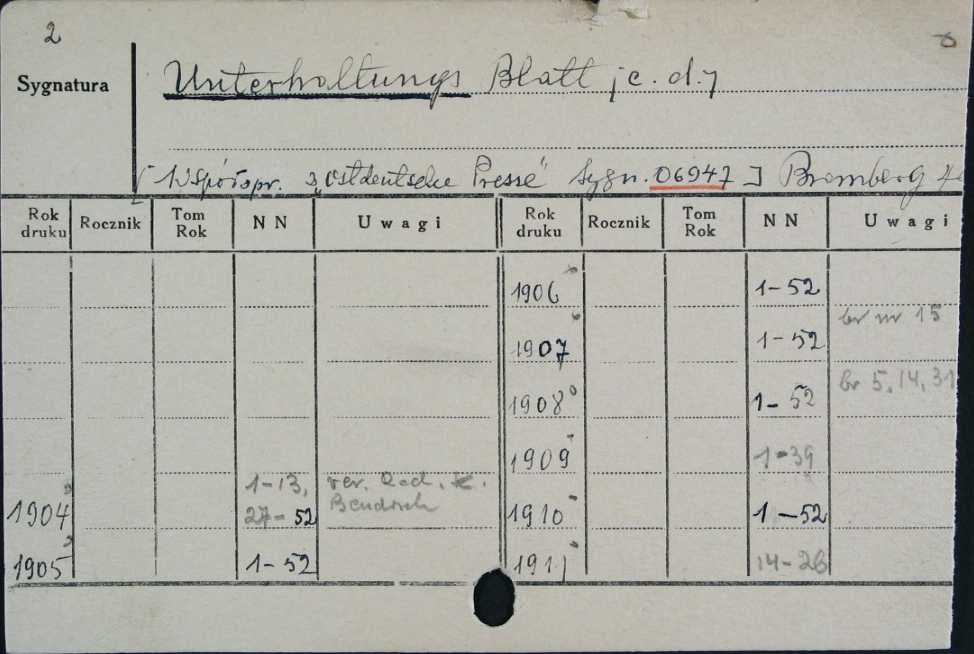 2
Sygnatura
Unterhaltungs Blatt /c. d./
[ Współopr. "Ostdeutsche Presse" Sygn. 06947 ] Bromberg
Rok druku Rocznik Tom Rok NN Uwagi Rok druku Rocznik Tom Rok NN Uwagi
1906 1-52
1907 1-52 br nr 15
1908 1-52 br 5, 14, 31
1909 1-39
1904 1-13, 27-52 ver. Red. K. Bendisch 1910 1-52
1905 1-52 1911 14-26